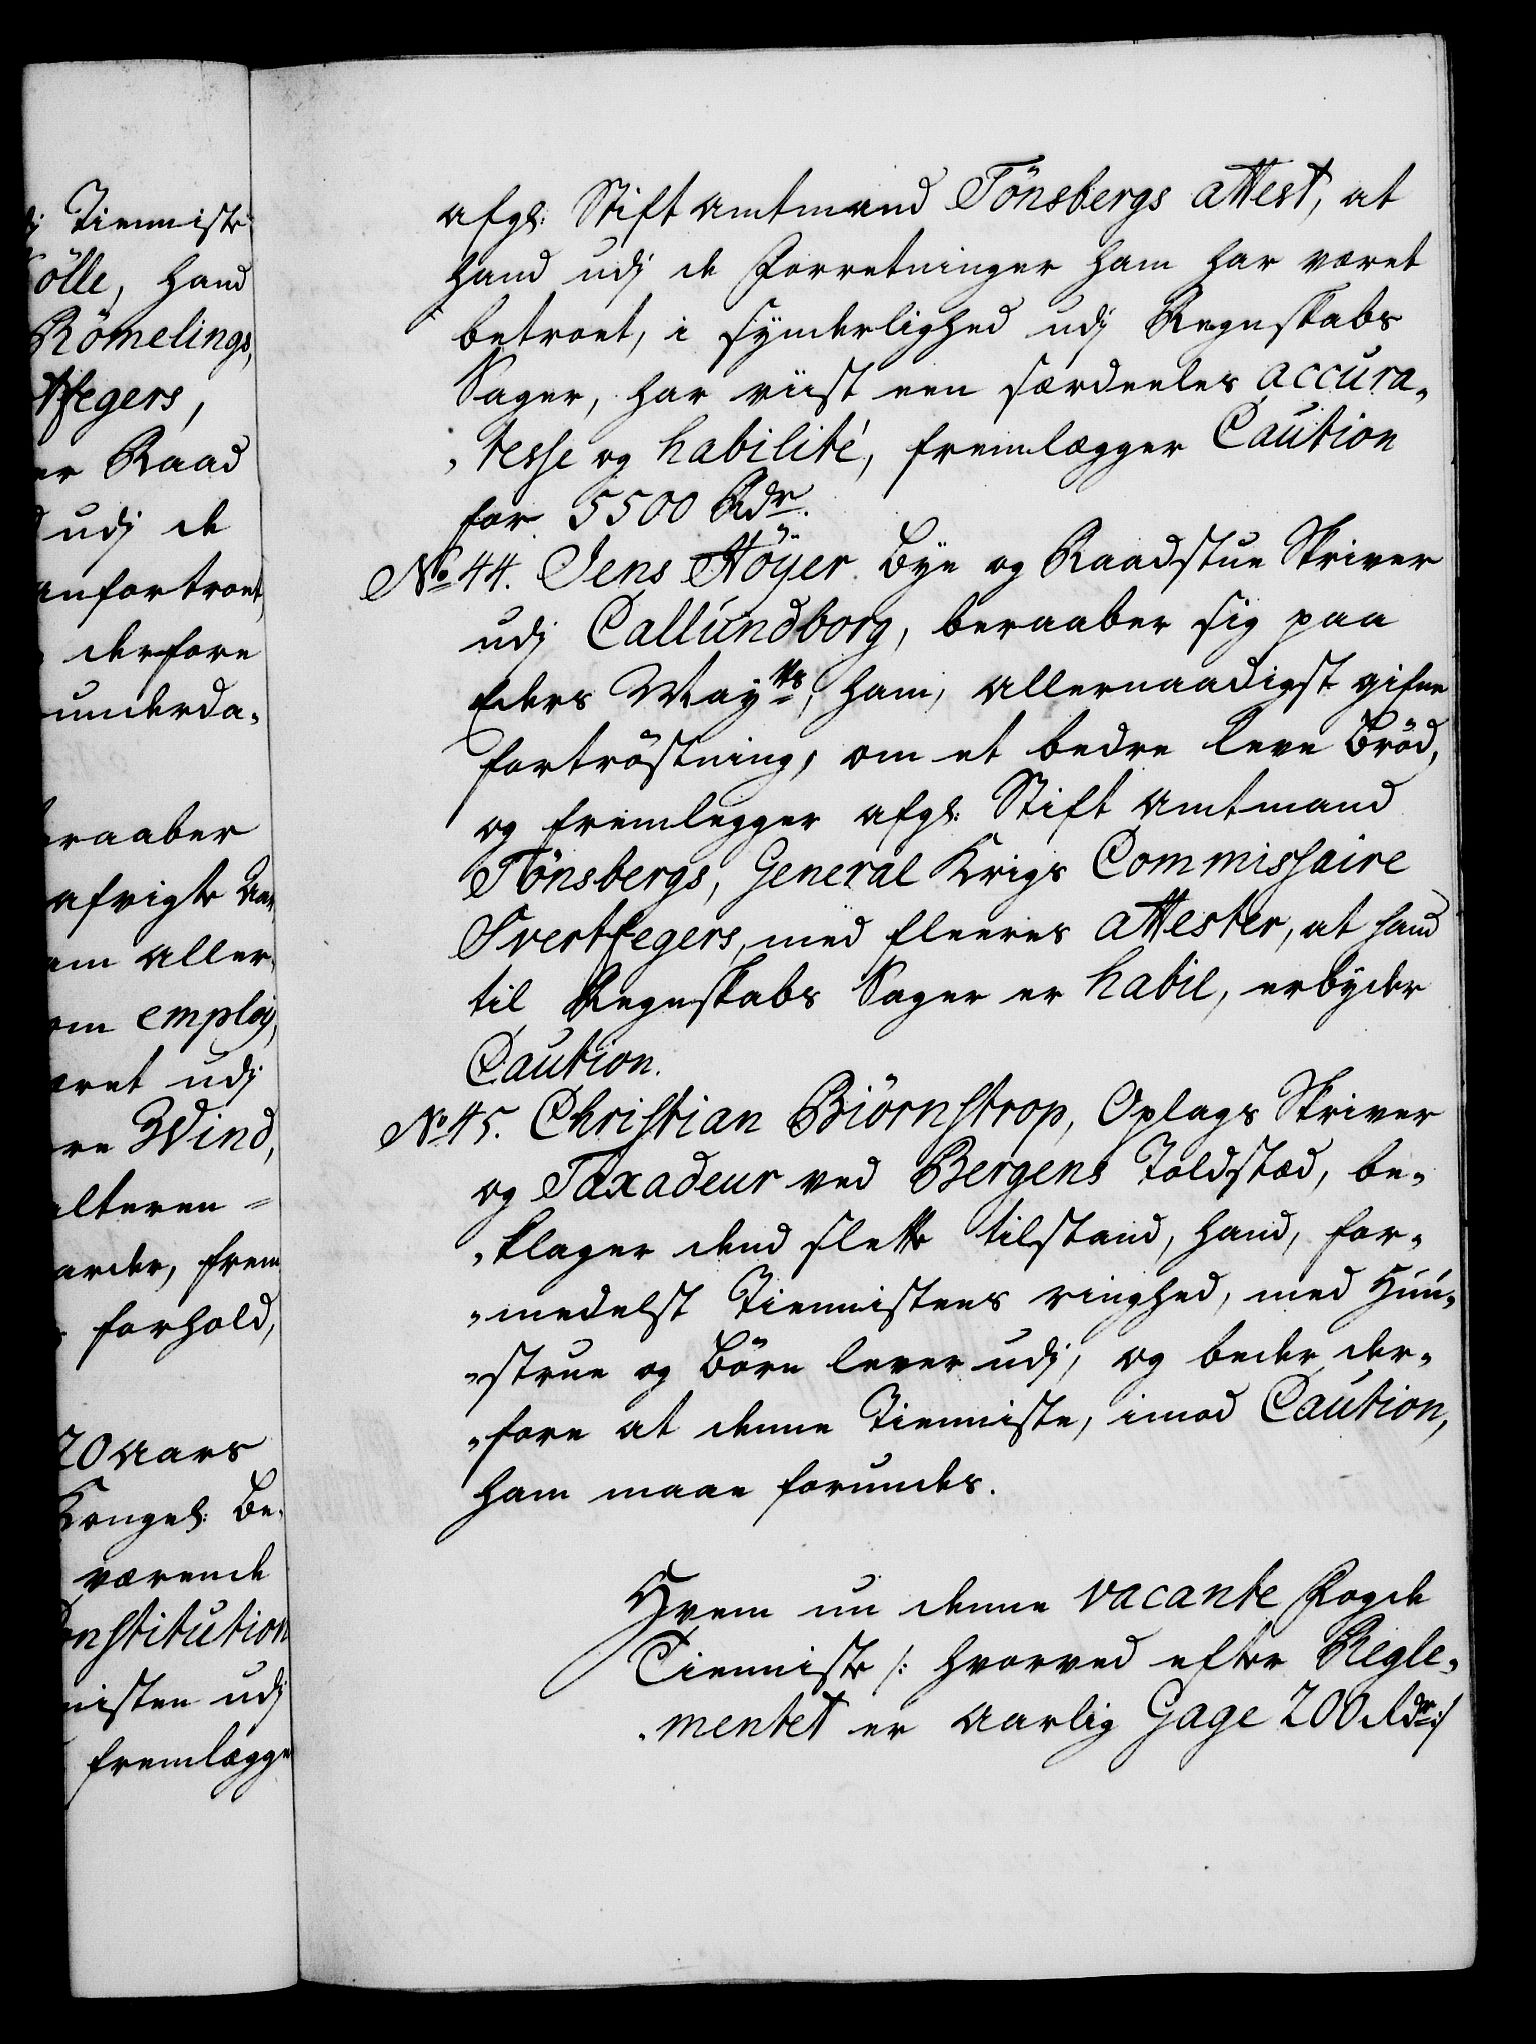 j Tienniste
ölle, hand
Römelings,
tfegers,
er Raad
udj de
anfortroet
derfore
underda„
eraaber
afvigte Aar
am aller„
om employ,
æret udj
re Wind,
alteren =
arder, frem
forhold,
20 aars
Kongel: Be„
værende
onstitution
nisten udj
fremlægge
afgl: Stiftamtmand Tönsbergs attest, at
hand udj de Forretninger ham har været
betroet, i synderlighed udj Regnskabs
Sager, har viist een særdeeles accura„
„tesse og habilité, fremlægger Caution
for 5500 Rdr.
No 44. Jens Höyer Bye og Raadstue Skriver
udj Callundborg, beraaber sig paa
Eders Mayts, ham, allernaadigst gifne
fortröstning, om et bedre leve Bröd,
og fremlegger afgl: Stift amtmand
Tönsbergs, General Krigs Commissaire
Svertfegers, med fleeres attester, at hand
til Regnskabs Sager er habil, erbyder
Caution.
No 45. Christian Biörnstrop, Oplags Skriver
og Taxadeur ved Bergens Toldstæd, be„
„klager dend slette tilstand, hand, for„
„medelst Tiennistens ringhed, med Huu„
„strue og Börn lever udj, og beder der„
„fore at denne Tienniste, imod Caution,
ham maae forundes.
Hvem nu denne vacante Fogde
Tienniste /: hvorved efter Regle„
„mentet er aarlig Gage 200 Rdr :/